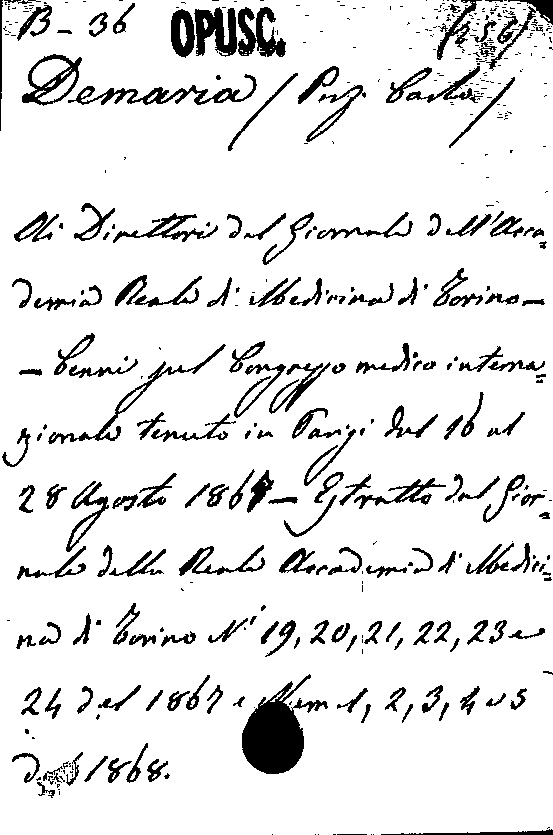 B - 36 OPUSC. (256)
Demaria / Prof. Carlo /
Ai Direttori del Giornale dell'Acca=
demia Reale di Medicina di Torino -
- Cenni sul Congresso medico interna=
zionale tenuto in Parigi dal 16 al
28 Agosto 1867 - Estratto dal Gior=
nale della Reale Accademia di Medici=
na di Torino Ni 19, 20, 21, 22, 23 e
24 del 1867 e Num 1, 2, 3, 4 e 5
del 1868.